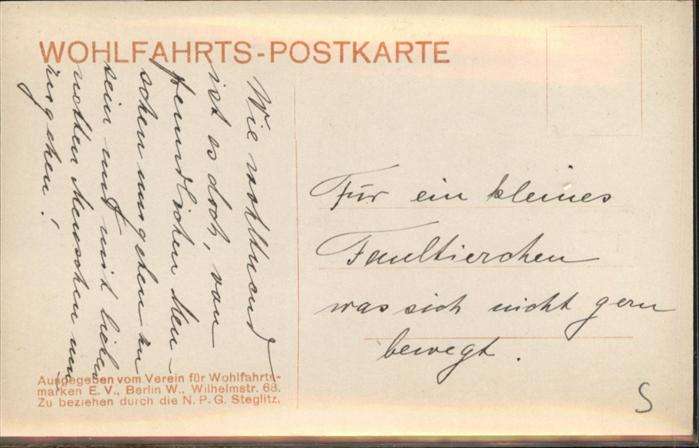 WOHLFAHRTS-POSTKARTE
Wie wohltuend
ist es doch, von
freundlichen Men-
schen umgeben zu
sein und mit lieben
netten Menschen um-
zugehen!
Für ein kleines
Faultierchen
was sich nicht gern
bewegt.
Ausgegeben vom Verein für Wohlfahrts-
marken E. V., Berlin W., Wilhelmstr. 68.
Zu beziehen durch die N. P. G. Steglitz.
S